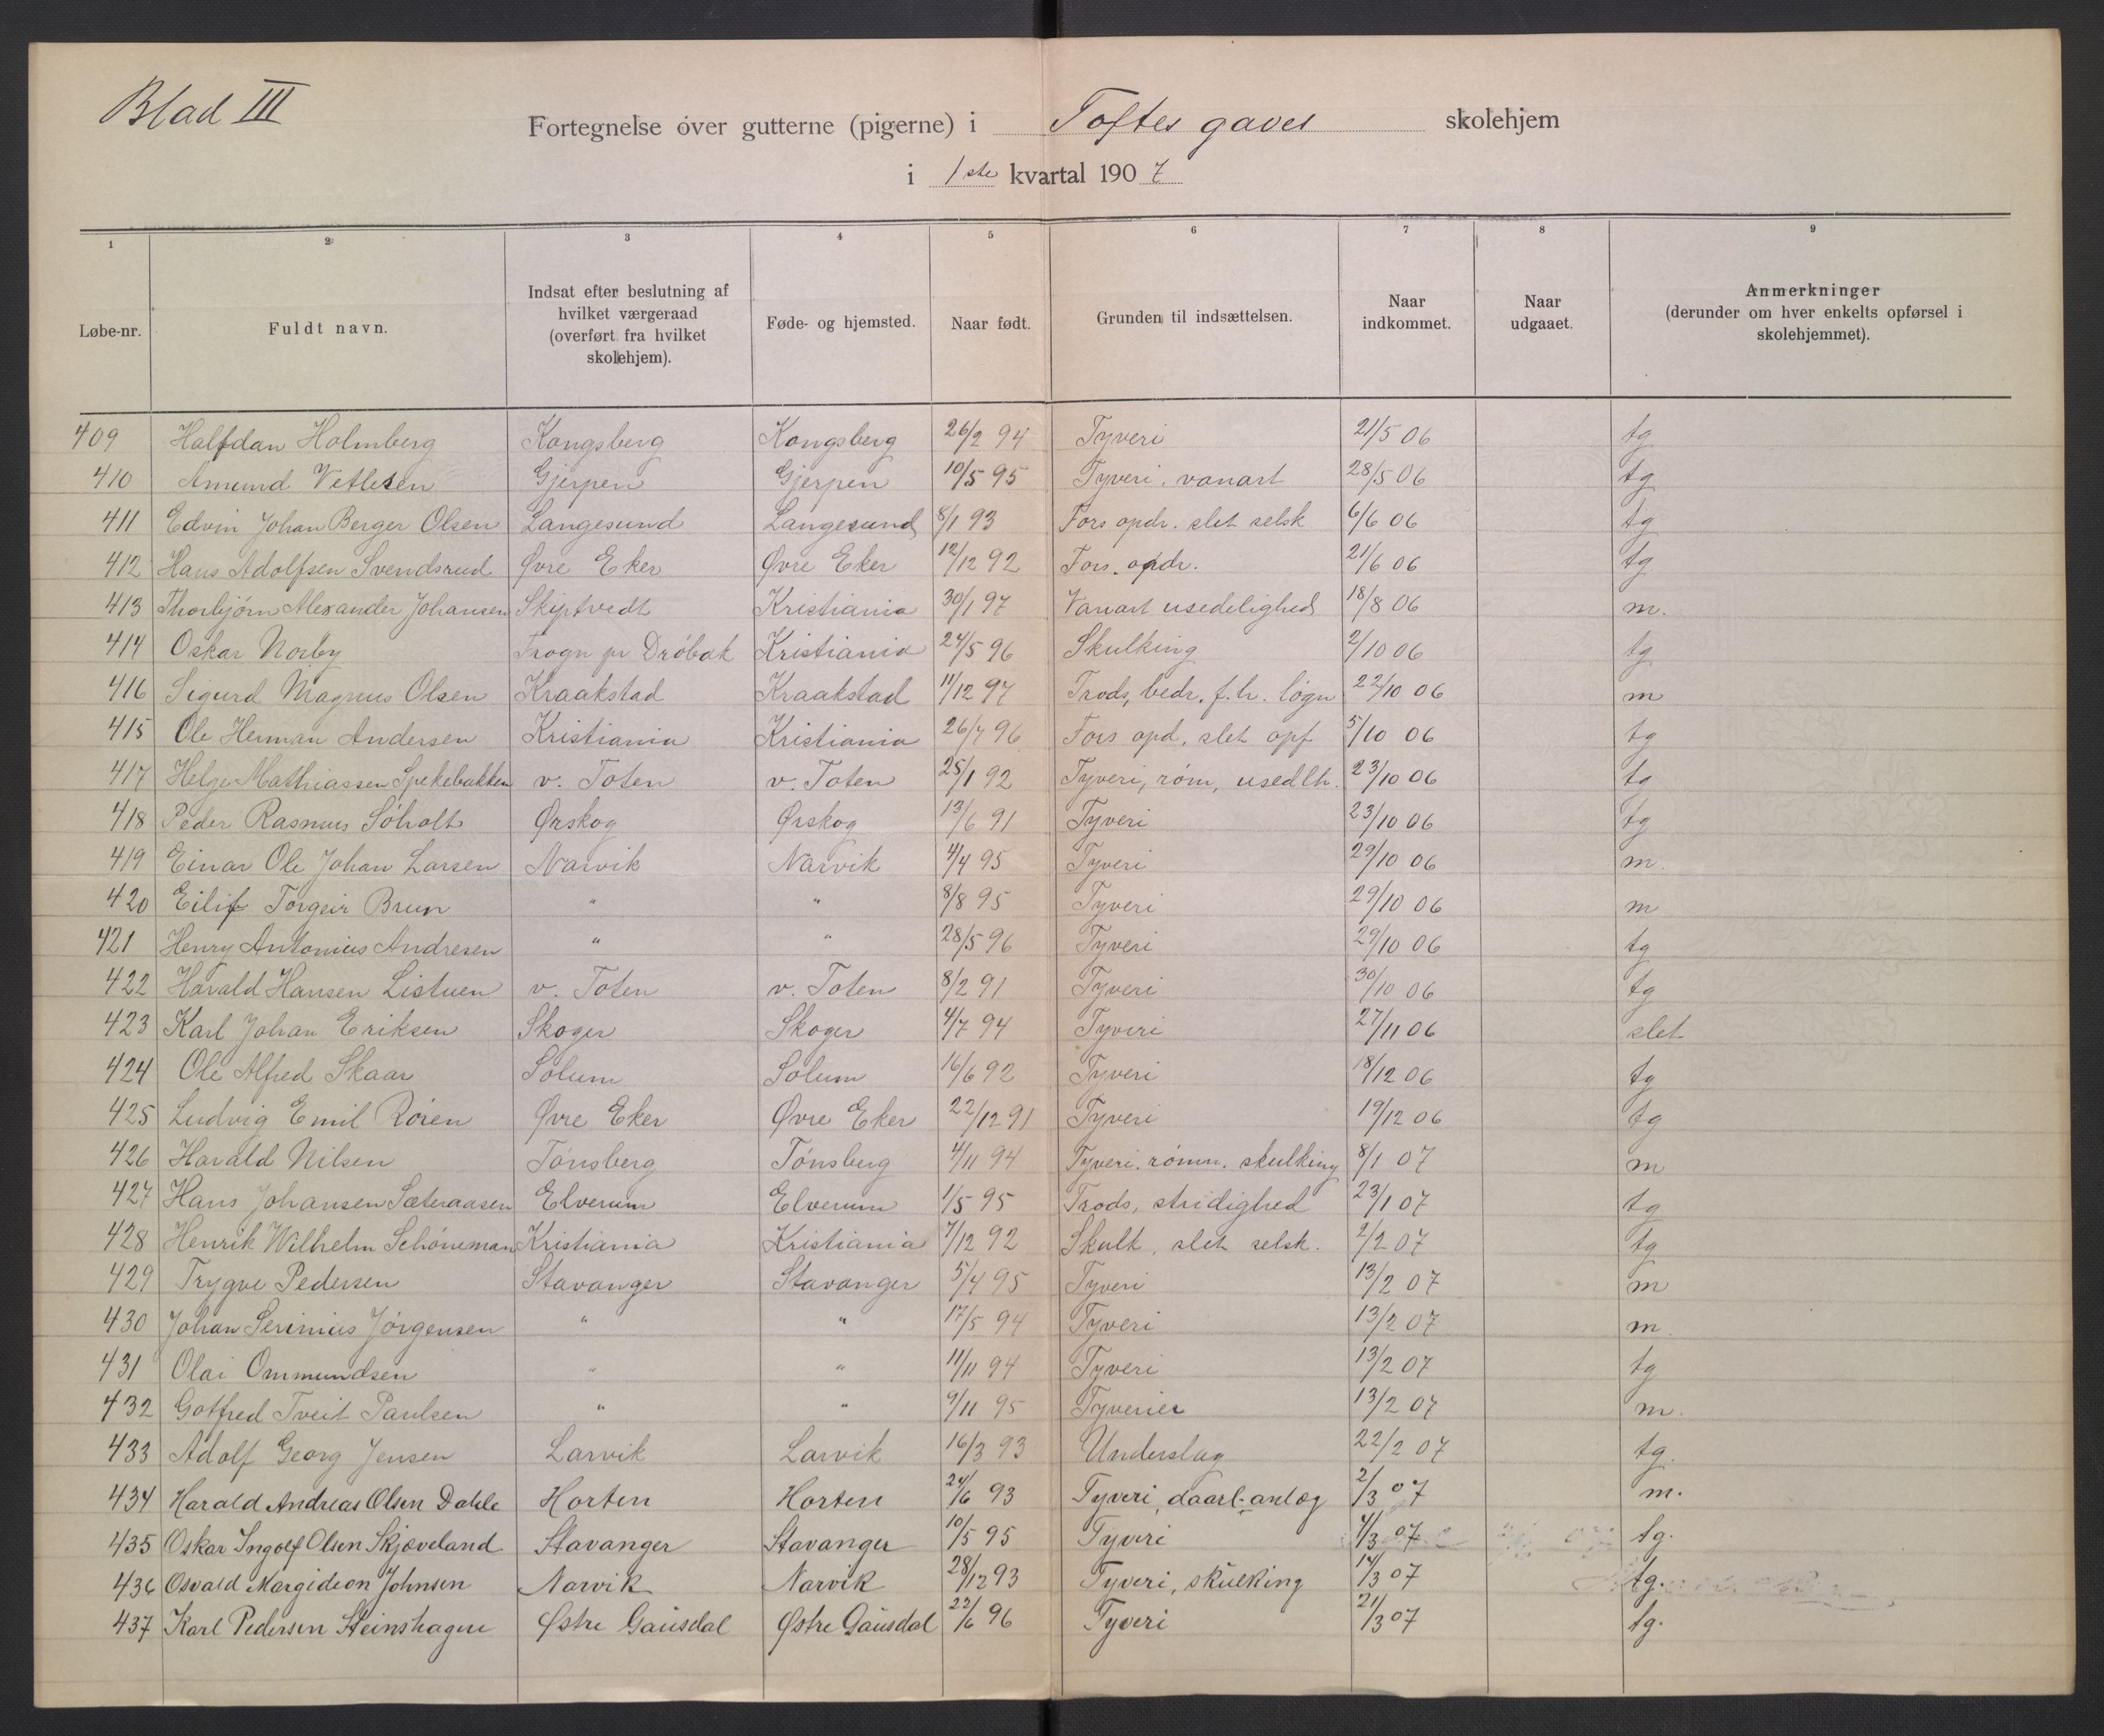 Blad III
Fortegnelse over gutterne (pigerne) i Toftes gaves skolehjem
i 1ste kvartal 1907
1 2 3 4 5 6 7 8 9
Løbe-nr. Fuldt navn. Indsat efter beslutning af hvilket værgeraad (overført fra hvilket skolehjem). Føde- og hjemsted. Naar født. Grunden til indsættelsen. Naar indkommet. Naar udgaaet. Anmerkninger (derunder om hver enkelts opførsel i skolehjemmet).
409 Halfdan Holmberg Kongsberg Kongsberg 26/2 94 Tyveri 21/5 06 tg
410 Amund Vetlesen Gjerpen Gjerpen 10/5 95 Tyveri, vanart 28/5 06 tg
411 Edvin Johan Berger Olsen Langesund Langesund 8/1 93 Fors opdr. slet selsk 6/6 06 tg
412 Hans Adolfsen Svendsrud Øvre Eker Øvre Eker 12/12 92 Fors. opdr. 21/6 06 tg
413 Thorbjörn Alexander Johansen Skiptvedt Kristiania 30/1 97 Vanart usedelighed 18/8 06 m.
414 Oskar Norby Frogn pr Dröbak Kristiania 24/5 96 Skulking 2/10 06 tg
416 Sigurd Magnus Olsen Kraakstad Kraakstad 11/12 97 Trods, bedr. f.h. lögn 22/10 06 m
415 Ole Herman Andersen Kristiania Kristiania 26/7 96 Fors opd, slet opf 5/10 06 tg
417 Helge Mathiassen Spekebakken v. Toten v. Toten 25/1 92 Tyveri, röm, usedlh. 23/10 06 tg
418 Peder Rasmus Söholt Ørskog Ørskog 13/6 91 Tyveri 23/10 06 tg
419 Einar Ole Johan Larsen Narvik Narvik 4/4 95 Tyveri 29/10 06 m.
420 Eilif Torgeir Brun " " 8/8 95 Tyveri 29/10 06 m
421 Henry Antonius Andresen " " 28/5 96 Tyveri 29/10 06 tg
422 Harald Hansen Listuen v. Toten v. Toten 8/2 91 Tyveri 30/10 06 tg
423 Karl Johan Eriksen Skoger Skoger 4/7 94 Tyveri 27/11 06 slet
424 Ole Alfred Skaar Solum Solum 16/6 92 Tyveri 18/12 06 tg
425 Ludvig Emil Rören Øvre Eker Øvre Eker 22/12 91 Tyveri 19/12 06 tg
426 Harald Nilsen Tönsberg Tönsberg 4/11 94 Tyveri. römn. skulking 8/1 07 m
427 Hans Johansen Sæteraasen Elverum Elverum 1/5 95 Trods, stridighed 23/1 07 tg
428 Henrik Wilhelm Schöneman Kristiania Kristiania 7/12 92 Skulk, slet selsk. 2/2 07 tg
429 Trygve Pedersen Stavanger Stavanger 5/4 95 Tyveri 13/2 07 m
430 Johan Serinius Jörgensen " " 17/5 94 Tyveri 13/2 07 m.
431 Olai Ommundsen " " 11/11 94 Tyveri 13/2 07 tg
432 Gotfred Tveit Paulsen " " 9/11 95 Tyverier 13/2 07 m.
433 Adolf Georg Jensen Larvik Larvik 16/3 93 Underslag 22/2 07 tg.
434 Harald Andreas Olsen Dahle Horten Horten 24/6 93 Tyveri, daarl. anlæg 2/3 07 m.
435 Oskar Ingolf Olsen Skjæveland Stavanger Stavanger 10/5 95 Tyveri 4/3 07 tg.
436 Osvald Margideon Johnsen Narvik Narvik 28/12 93 Tyveri, skulking 14/3 07 tg.
437 Karl Pedersen Steinshagen Østre Gausdal Østre Gausdal 22/6 96 Tyveri 21/3 07 tg.